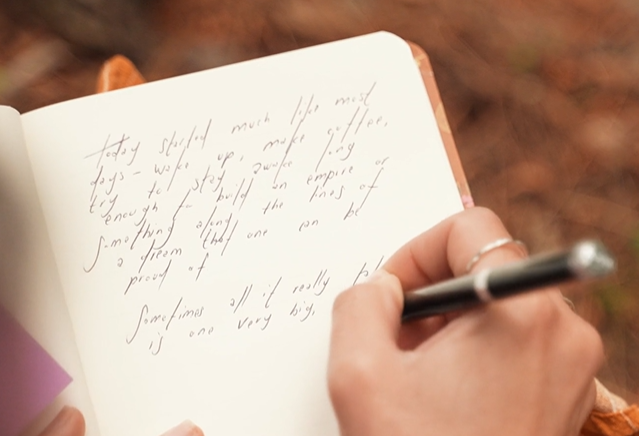 today started much like most
days - wake up, make coffee,
try to stay awake long
enough to build an empire or
something along the lines of
a dream that one can be
proud of
Sometimes all it really
is one very big,